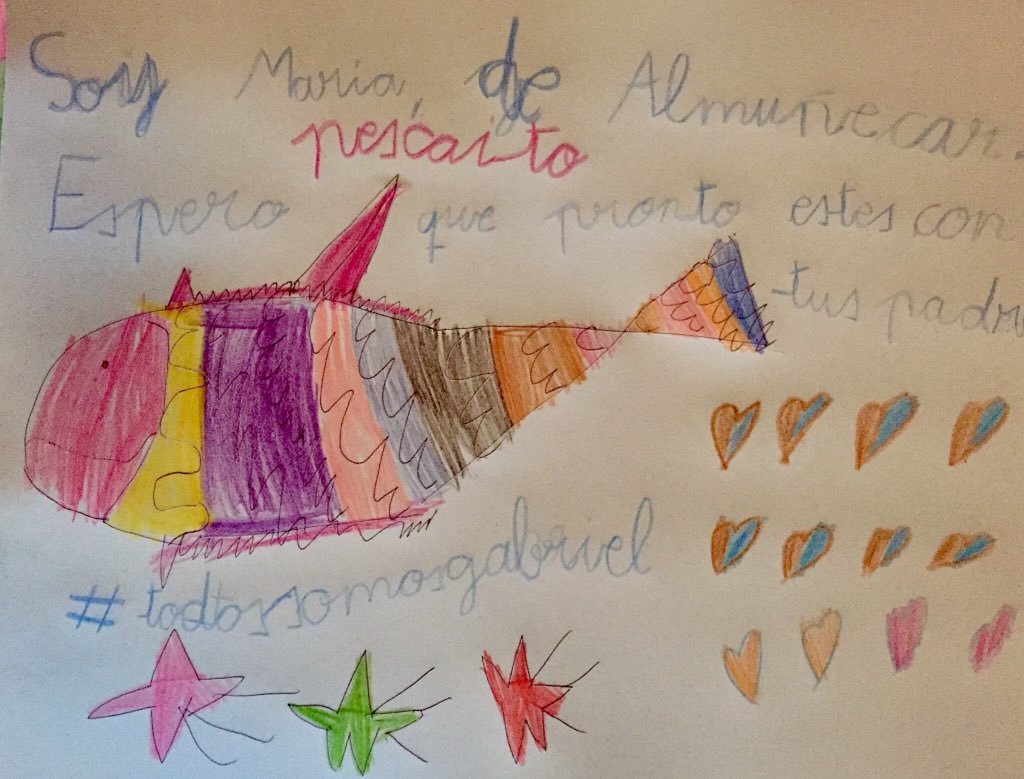 Soy María, de Almuñecar.
pescaito
Espero que pronto estes con
tus padr
#todossomosgabriel